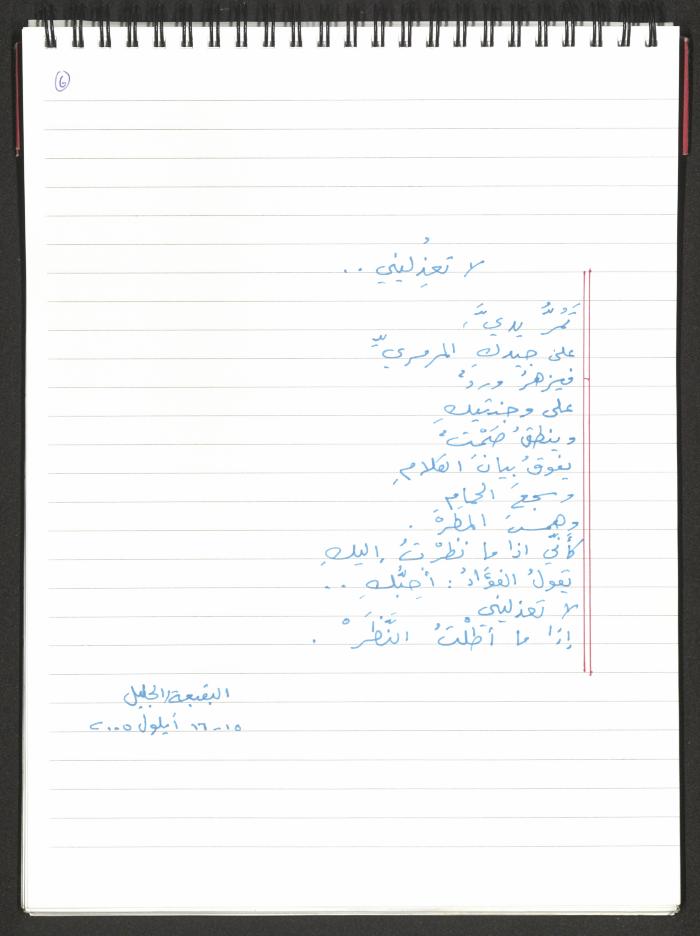 6
لا تعذُليني ..
تَمُرُّ يديَّ
على جيدكِ المرمريِّ
فيزهرُ وردٌ
على وجنتيكِ
وينطقُ صَمْتٌ
يفوقُ بيانَ الكلامِ
وسجعَ الحمامِ
وهمسَ المطرْ .
كأَنّي اذا ما نظرْتُ إليكِ
يقولُ الفؤَادُ : أُحِبُّكِ ..
لا تعذليني
إذا ما أطلْتُ النَّظَرْ .
البقيعة/الجليل
١٥-١٦ أيلول ٢٠٠٥